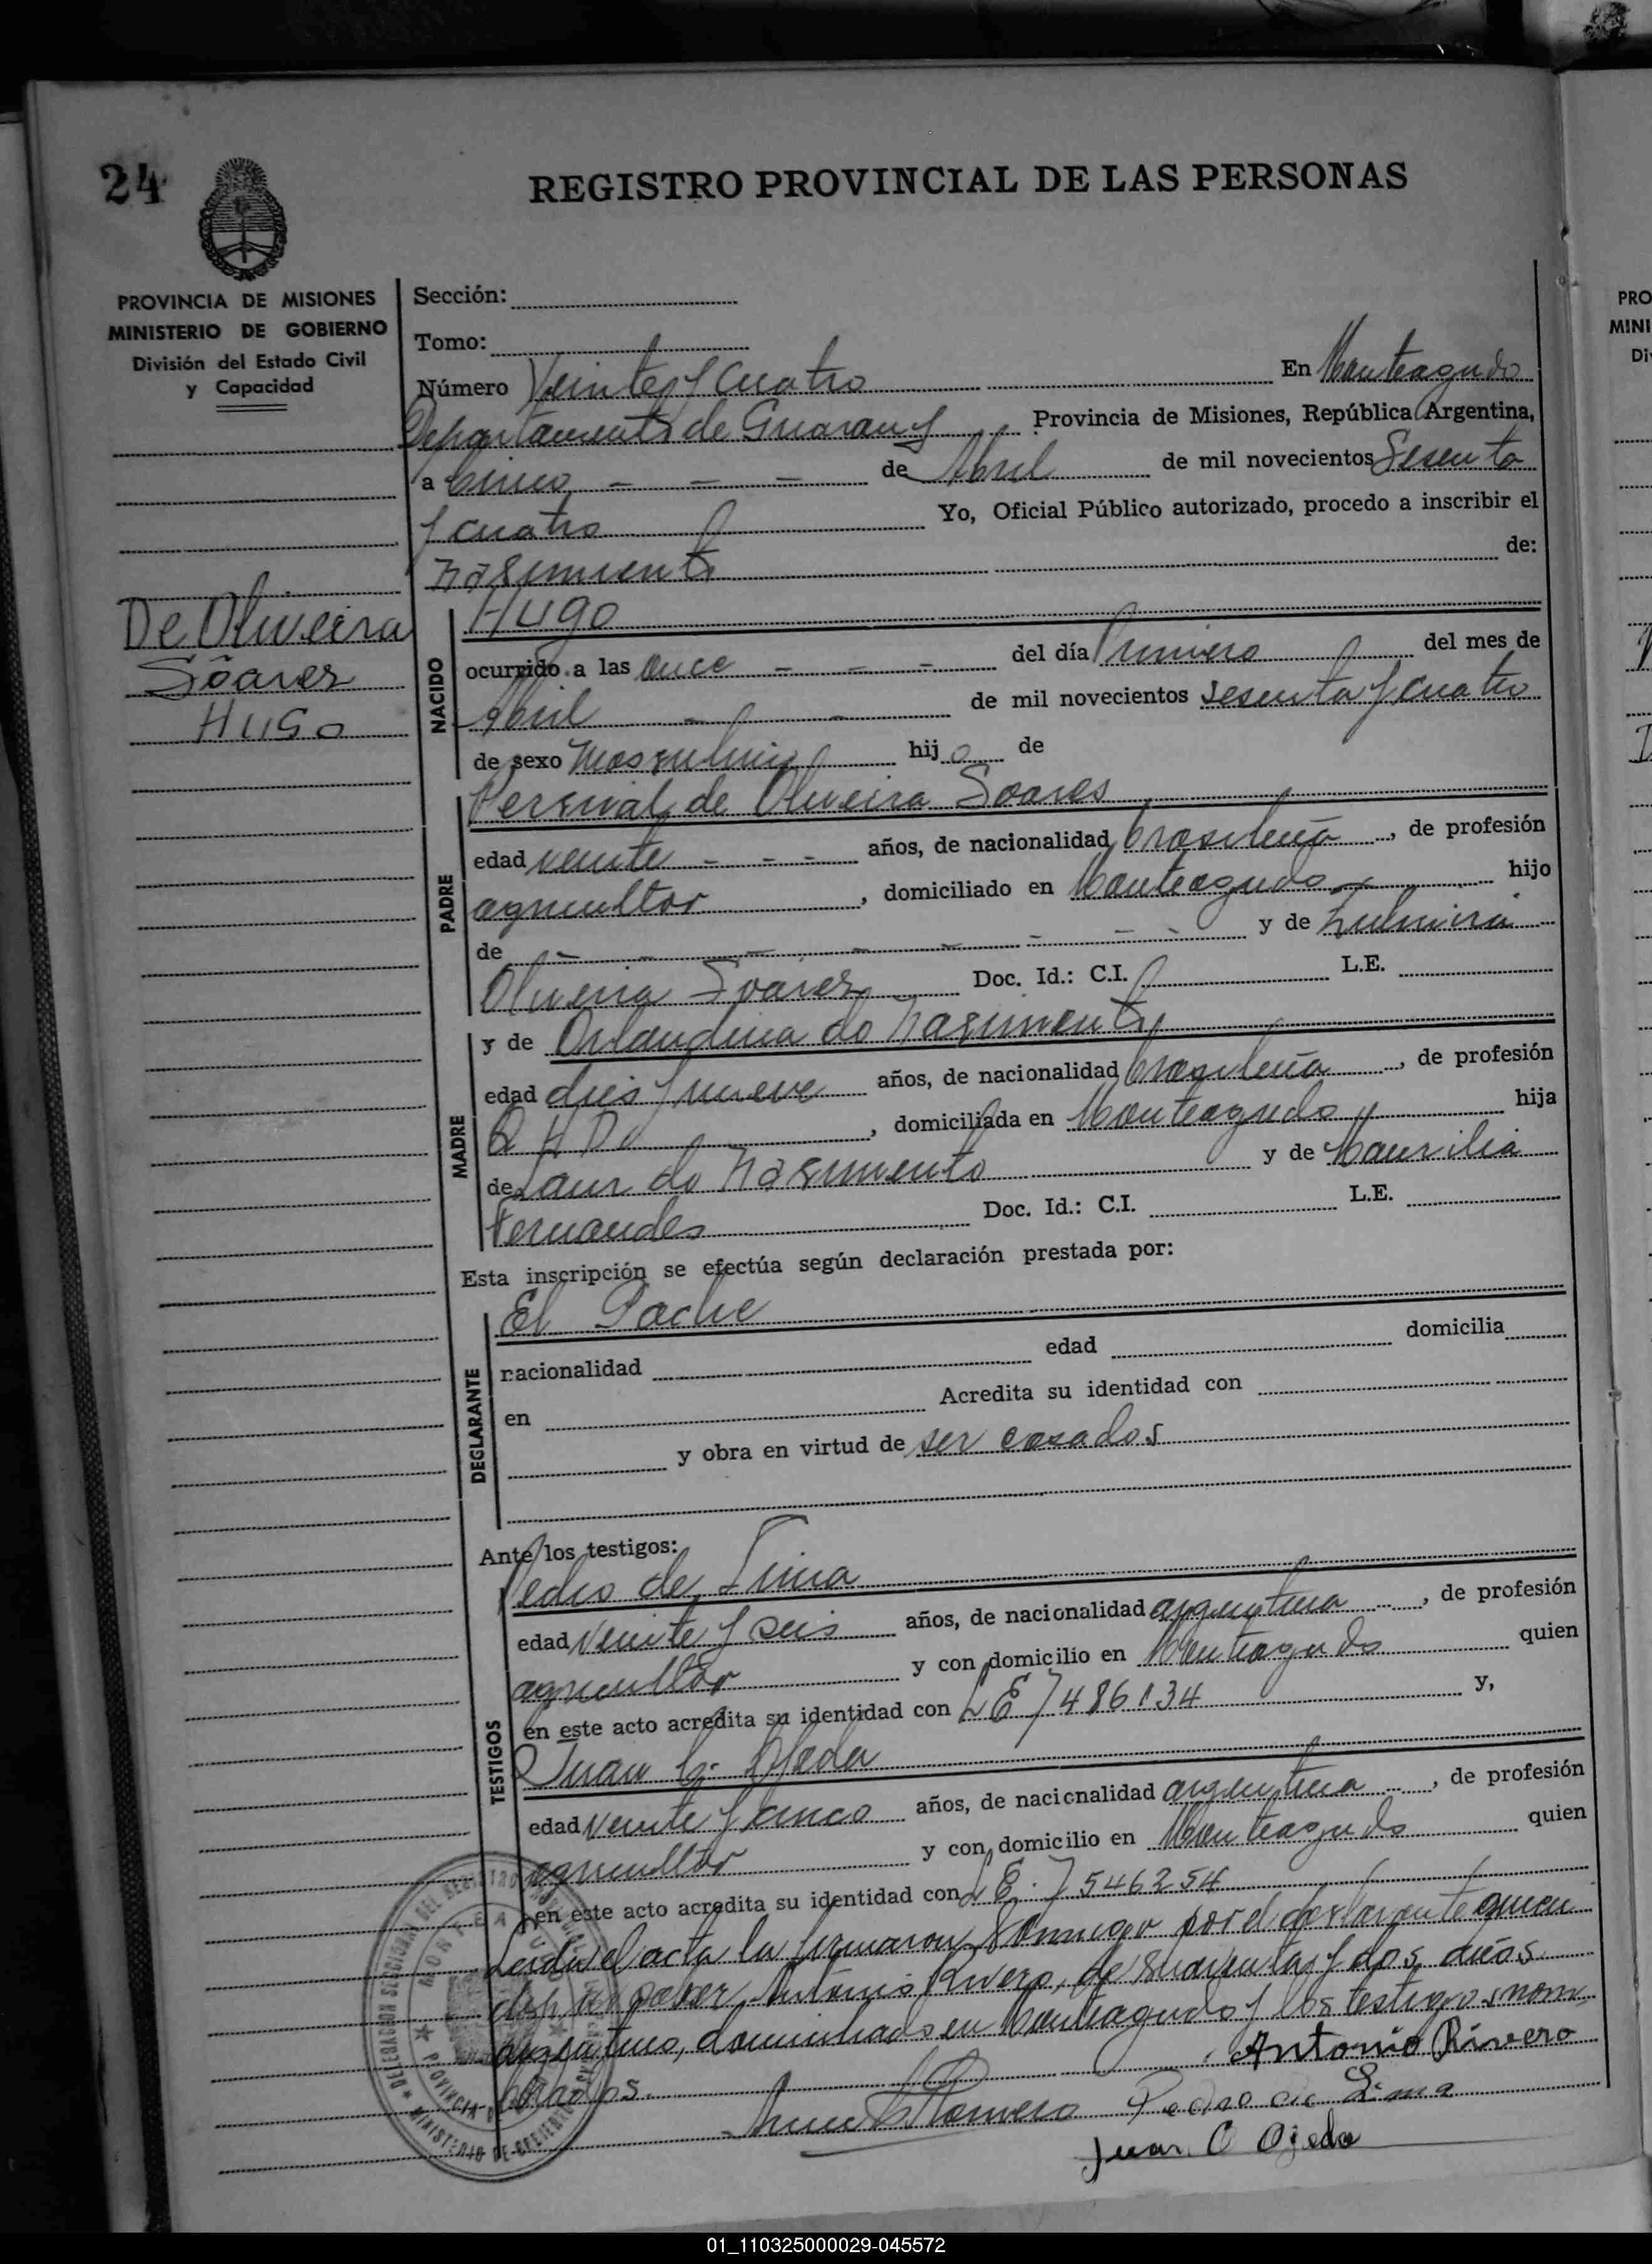 24
REGISTRO PROVINCIAL DE LAS PERSONAS
PROVINCIA DE MISIONES
MINISTERIO DE GOBIERNO
División del Estado Civil
y Capacidad
De Oliveira
Sõares
HUGO
Sección:
Tomo:
Número Veinte y cuatro En Monteagudo
Departamento de Guarany Provincia de Misiones, República Argentina,
a Cinco de Abril de mil novecientos Sesenta
y cuatro Yo, Oficial Público autorizado, procedo a inscribir el
nasimiento de:
NACIDO
Hugo
ocurrido a las once del día Primero del mes de
Abril de mil novecientos sesenta y cuatro
de sexo masculino hijo de
PADRE
Persival de Oliveira Soares
edad veinte años, de nacionalidad brasileña, de profesión
agricultor, domiciliado en Monteagudo hijo
de y de Zulmira
Oliveira Soares Doc. Id.: C.I. L.E.
MADRE
y de Orlandina do Nasimento
edad dies y nueve años, de nacionalidad brasileña, de profesión
Q H Do, domiciliada en Monteagudo hija
de Laur do Nasimento y de Maurilia
Fernandes Doc. Id.: C.I. L.E.
Esta inscripción se efectúa según declaración prestada por:
DEGLARANTE
El Padre
nacionalidad edad domicilia
en Acredita su identidad con
y obra en virtud de ser casados
Ante los testigos:
TESTIGOS
Pedro de Lima
edad veinte y seis años, de nacionalidad argentina, de profesión
agricultor y con domicilio en Monteagudo quien
en este acto acredita su identidad con L E 7486134 y,
Juan C. Ojeda
edad veinte y cinco años, de nacionalidad argentina, de profesión
agricultor y con domicilio en Monteagudo quien
en este acto acredita su identidad con L E. 7546254
Leida el acta la firmaron conmigo por el declarante quien
dijo no saber, Antonio Rivero, de cuarenta y dos años
argentino, domiciliado en Monteagudo y los testigos nom-
brados.
Antonio Rivero
Romero Pedro de Lima
Juan C Ojeda
01_110325000029-045572
PRO
MINI
Di